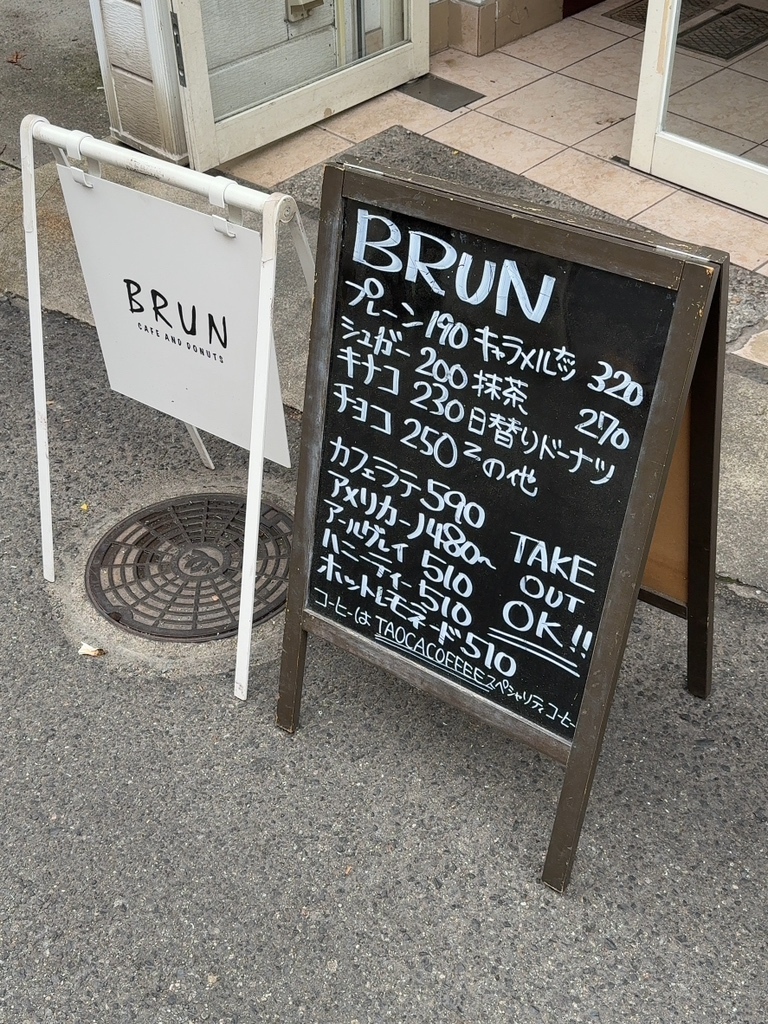 BRUN
CAFE AND DONUTS
BRUN
プレーン 190 キャラメルナッツ 320
シュガー 200 抹茶 270
キナコ 230 日替りドーナツ
チョコ 250 その他
カフェラテ 590
アメリカーノ 480~
アールグレイ 510
ハニーティー 510
ホットレモネード 510
TAKE
OUT
OK!!
コーヒーは TAOCACOFFEE スペシャリティコーヒー